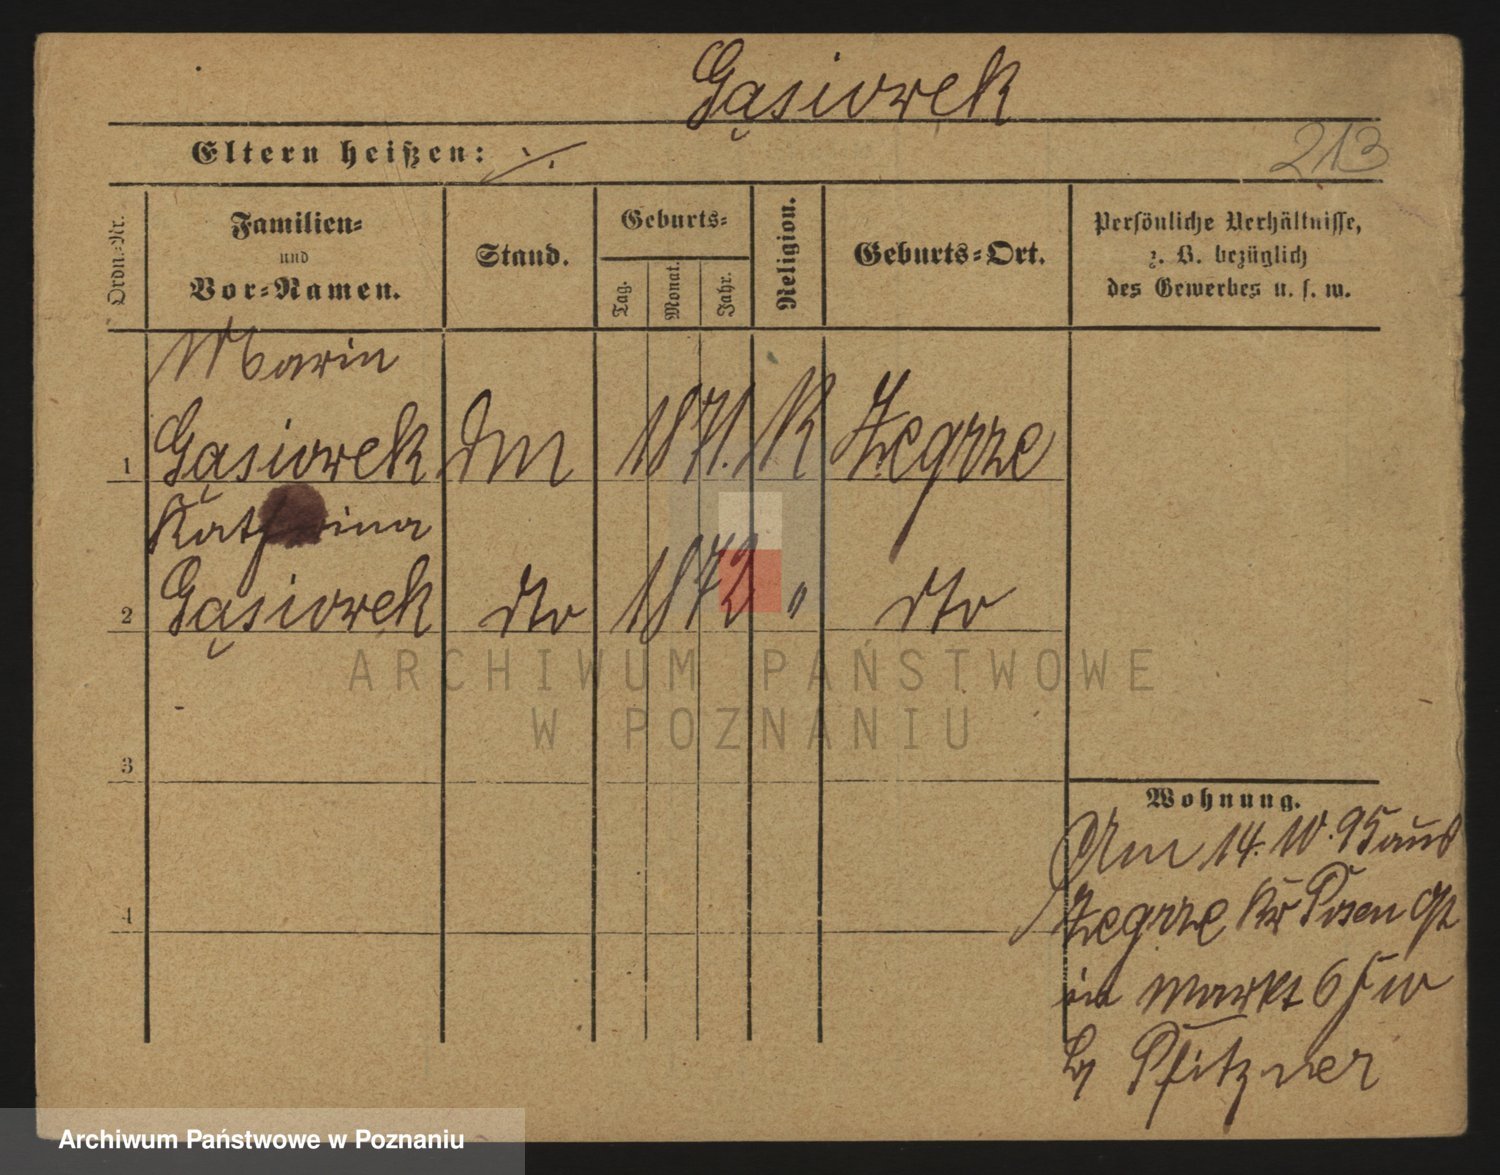 Gąsiorek
213
Eltern heißen: ./.
Ordn.-Nr.
Familien- und Vor-Namen.
Stand.
Geburts-
Tag. Monat. Jahr.
Religion.
Geburts-Ort.
Persönliche Verhältnisse,
z. B. bezüglich
des Gewerbes u. s. w.
Marie
1 Gąsiorek 1871. K Zegrze
Katharina
2 Gąsiorek dto 1872 " dto
3
4
Wohnung.
Am 14.10.95 aus
Zegrze Kr Posen
in Markt 6
Pfitzner
ARCHIWUM PAŃSTWOWE
W POZNANIU
Archiwum Państwowe w Poznaniu